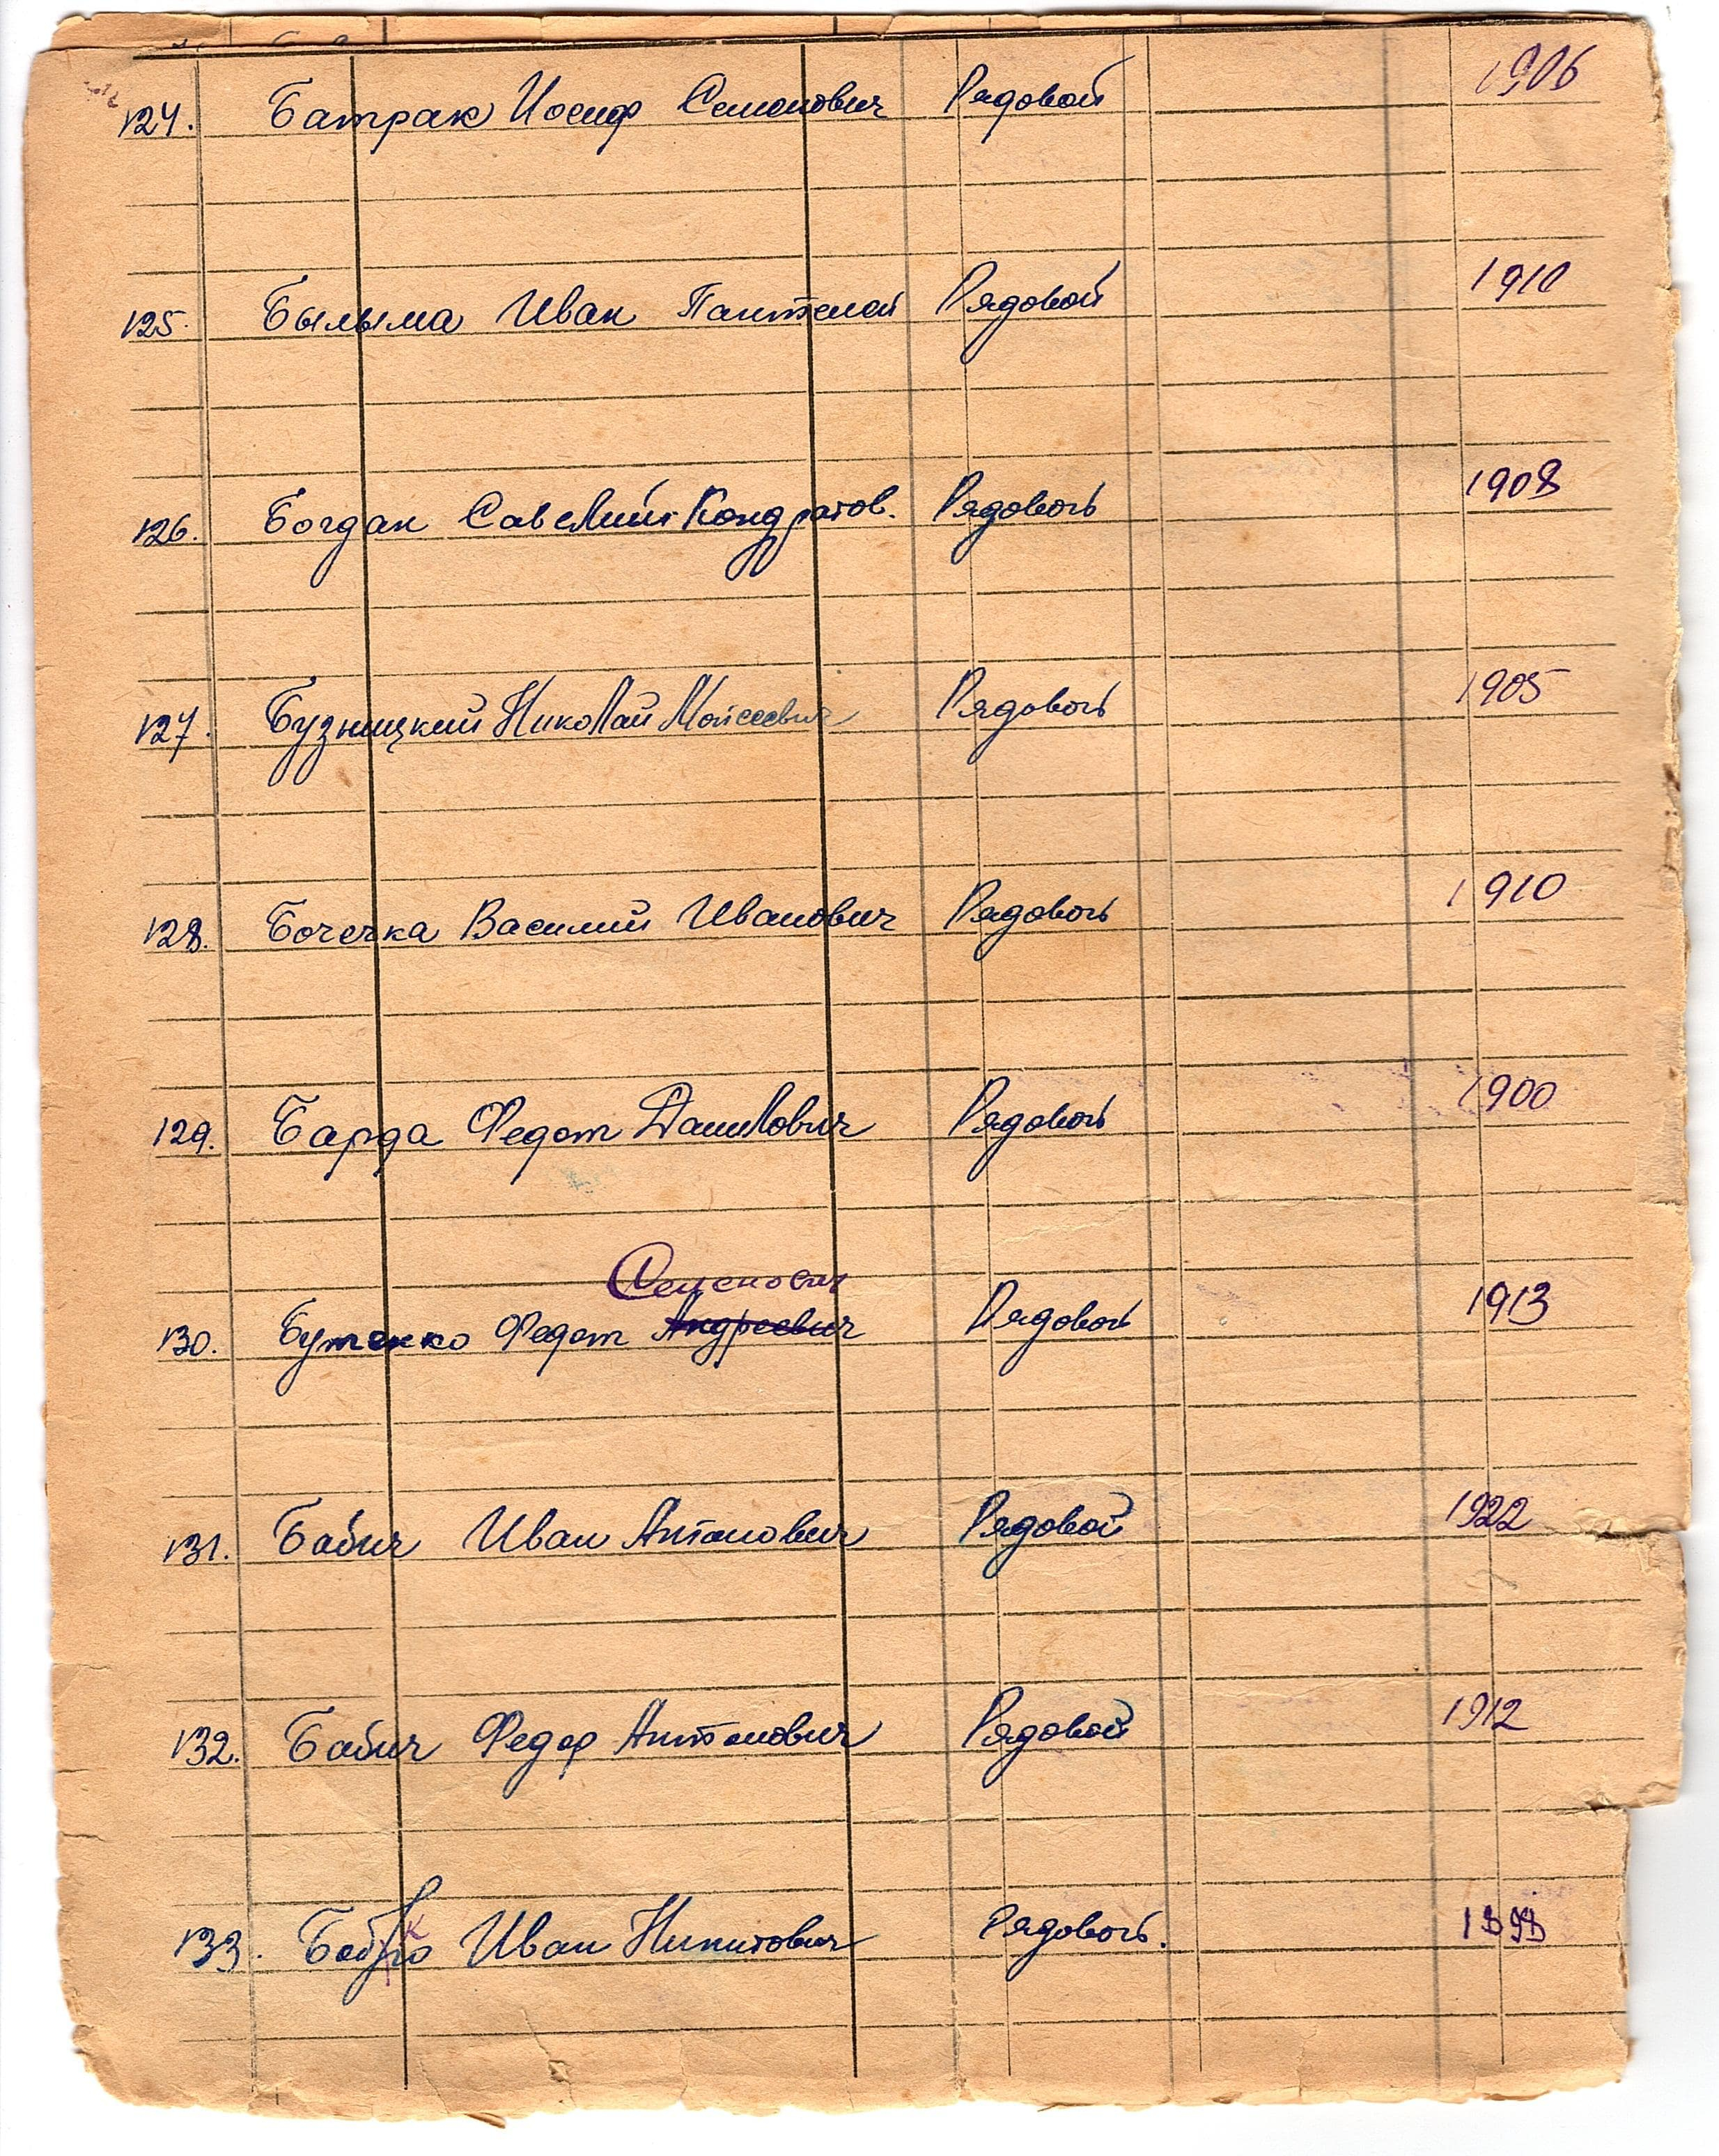 124. Батрак Иосиф Семенович Рядовой 1906
125. Былыма Иван Пантелей Рядовой 1910
126. Богдан Савелий Кондратов. Рядовой 1908
127. Бузницкий Николай Мойсеевич Рядовой 1905
128. Бочечка Василий Иванович Рядовой 1910
129. Барда Федот Данилович Рядовой 1900
Семенович
130. Бутенко Федот Андреевич Рядовой 1913
131. Бабич Иван Антонович Рядовой 1922
132. Бабич Федор Антонович Рядовой 1912
133. Иван Никитович Рядовой. 1898